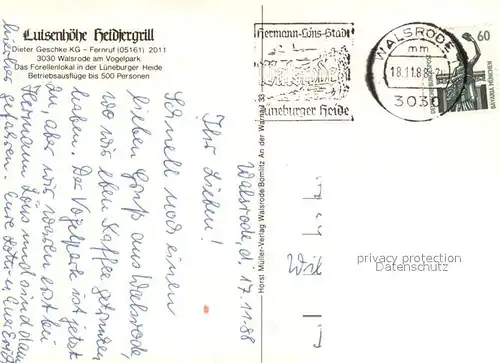 Luisenhöhe Heidjergrill
Dieter Geschke KG – Fernruf (05161) 2011
3030 Walsrode am Vogelpark
Das Forellenlokal in der Lüneburger Heide
Betriebsausflüge bis 500 Personen
Hermann-Löns-Stadt
Lüneburger Heide
WALSRODE
mm
18.11.88
3030
60
DEUTSCHE BUNDESPOST
BAVARIA MÜNCHEN
Horst Müller-Verlag Walsrode/Bomlitz An der Warnau 33
Walsrode, d. 17.11.88
Ihr Lieben!
Schnell noch einen
lieben Gruß aus Walsrode,
wo wir eben Kaffee getrunken
haben. Der Vogelpark ist jetzt
zu, aber wir waren erst bei
Hermann Löns und sind dann
hierher gefahren. Eure
privacy protection
Datenschutz